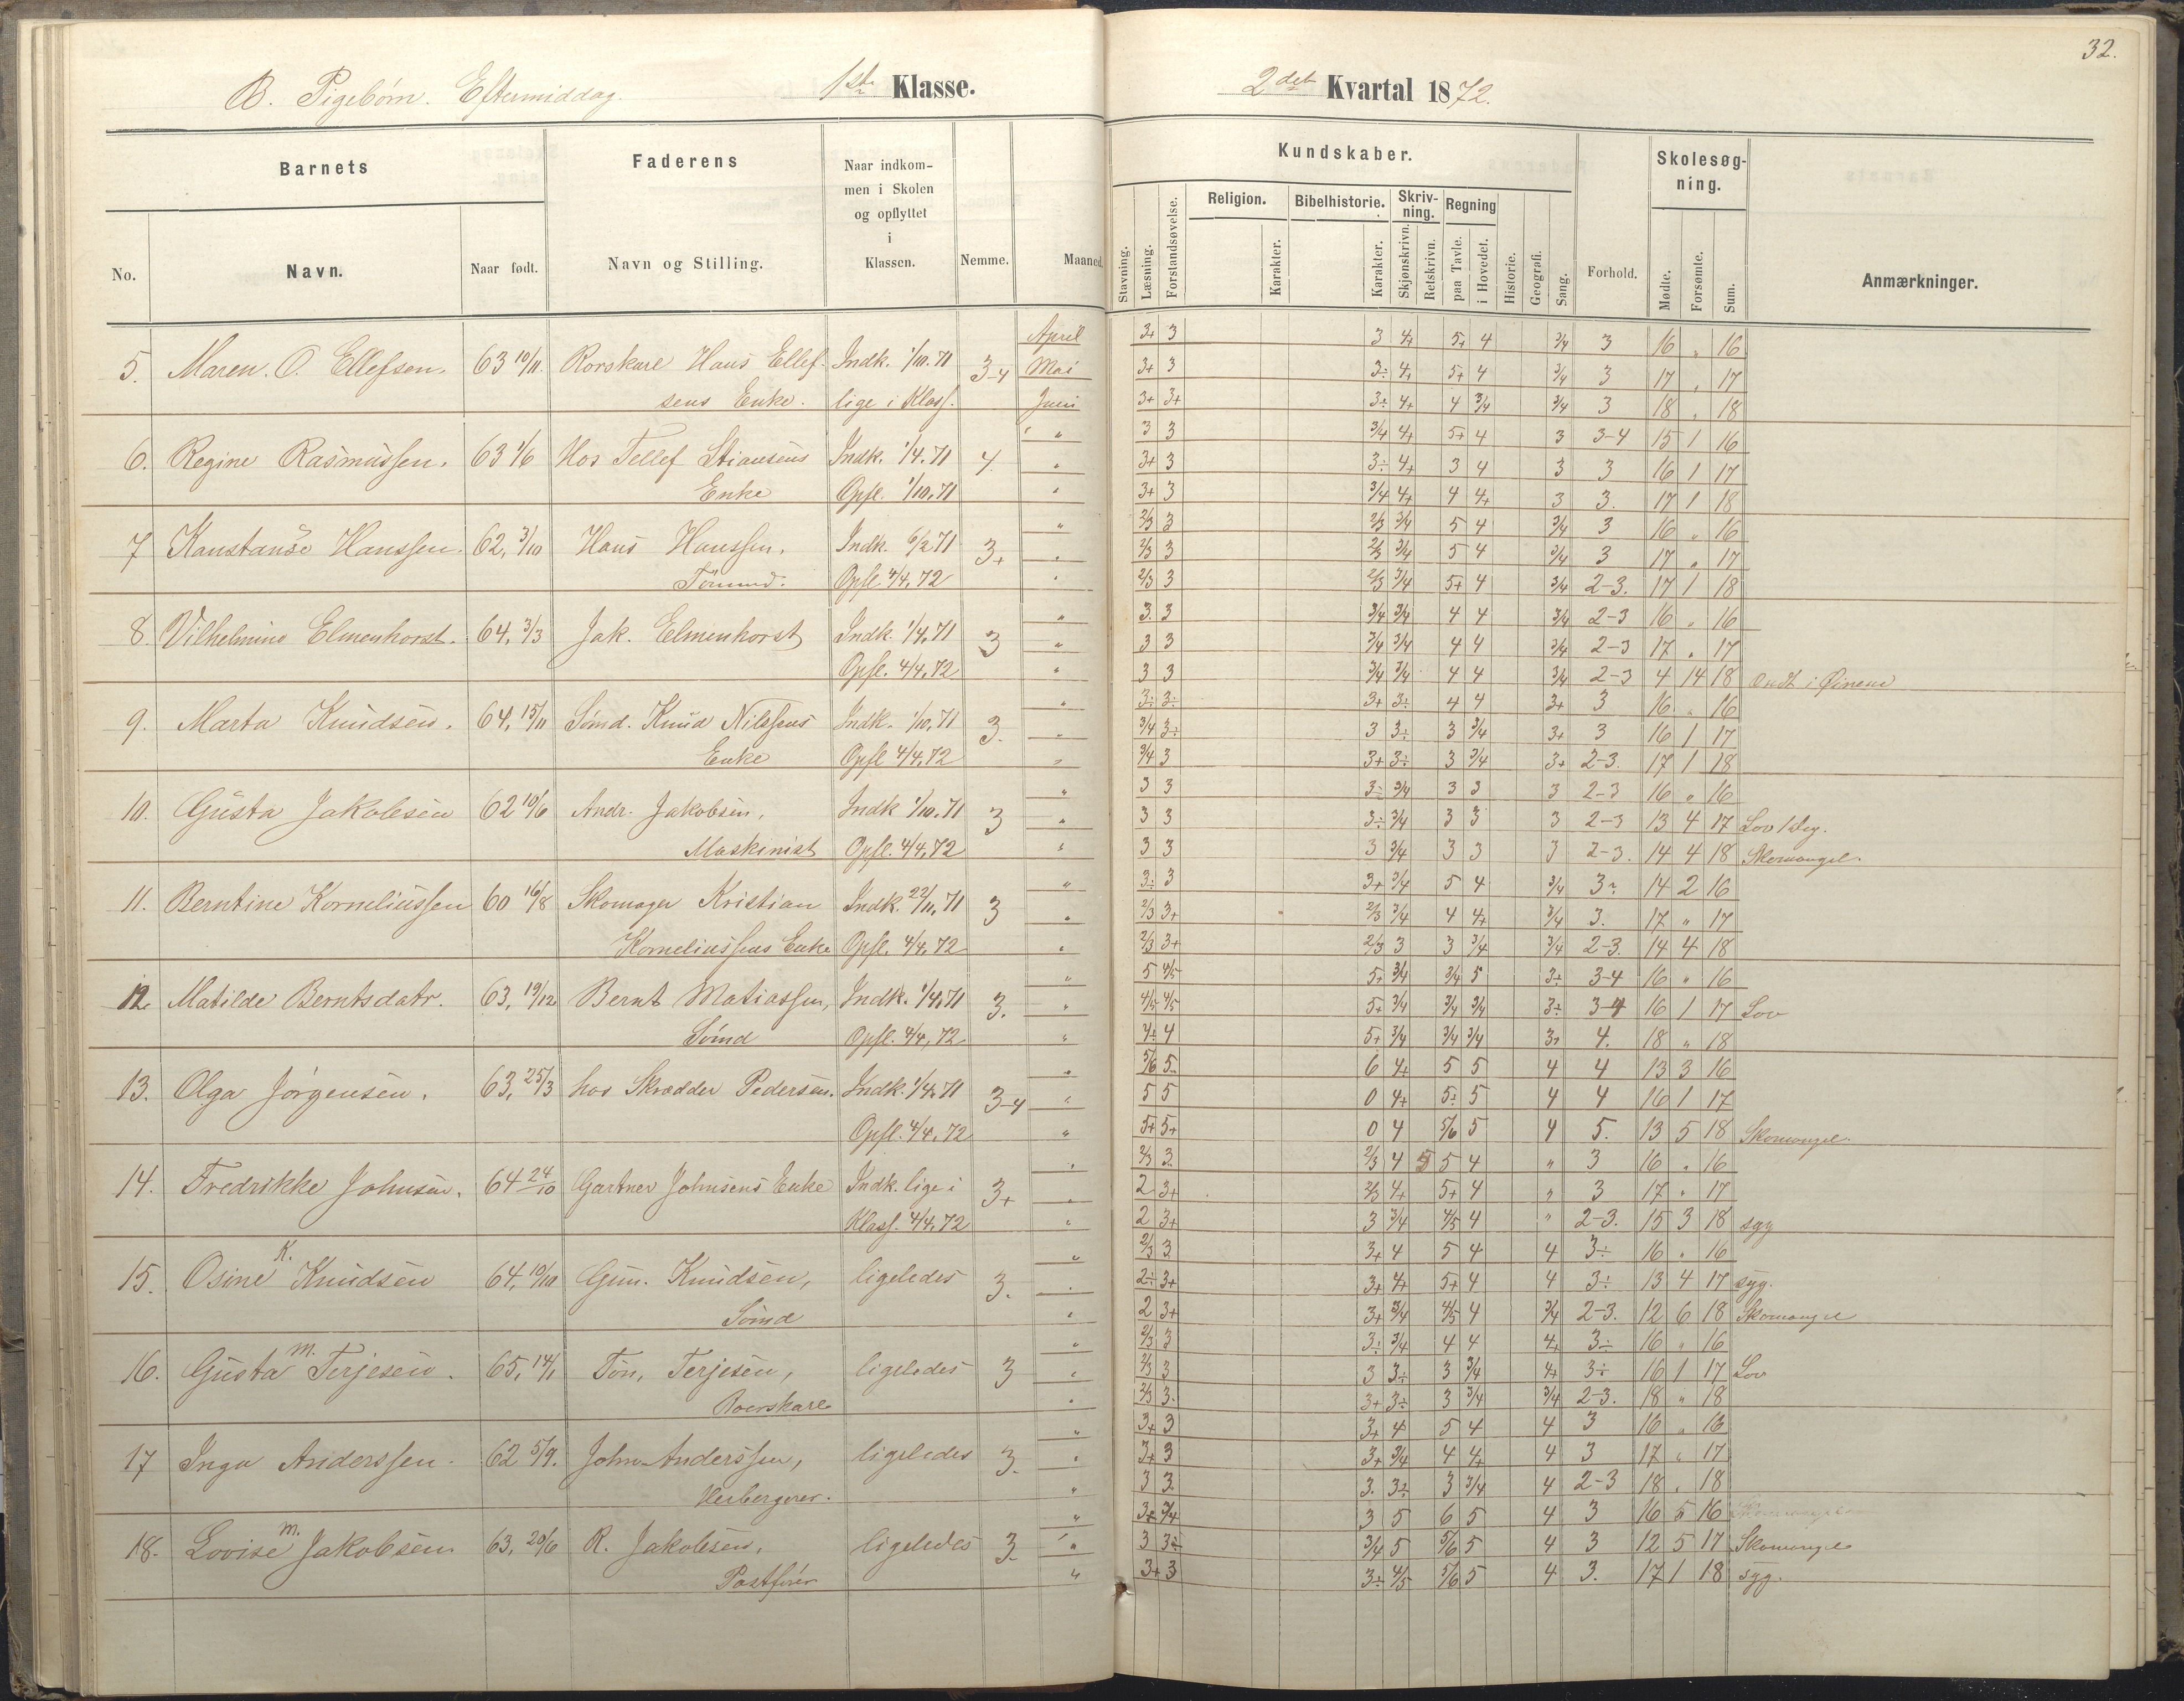 32.
B. Pigebörn. Eftermiddag. 1ste Klasse. 2det Kvartal 1872.
Barnets Faderens Naar indkommen i Skolen og opflyttet i Klassen. Nemme. Maaned. Kundskaber. Skolesøgning. Anmærkninger.
No. Navn. Naar født. Navn og Stilling.
Stavning. Læsning. Forstandsøvelse. Religion. Karakter. Bibelhistorie. Karakter. Skrivning. Skjønskrivn. Retskrivn. Regning paa Tavle. i Hovedet. Historie. Geografi. Sang. Forhold. Mødte. Forsømte. Sum.
April 3+ 3 3 4+ 5+ 4 3/4 3 16 „ 16
5. Maren. O. Ellefsen. 63 10/11 Rorskarl Hans Ellef- Indk. 1/10.71 3-4 Mai 3+ 3 3÷ 4+ 5+ 4 3/4 3 17 „ 17
sens Enke. lige i Klass. Juni 3+ 3+ 3÷ 4+ 4 3/4 3/4 3 18 „ 18
„ 3 3 3/4 4+ 5+ 4 3 3-4 15 1 16
6. Regine Rasmussen. 63 1/6 Hos Tellef Stiansens Indk. 1/4.71 4. „ 3+ 3 3÷ 4+ 3 4 3 3 16 1 17
Enke Opfl. 1/10.71 „ 3+ 3 3/4 4+ 4 4+ 3 3. 17 1 18
„ 2/3 3 2/3 3/4 5 4 3/4 3 16 „ 16
7 Konstanse Hanssen. 62, 3/10 Hans Hanssen, Indk. 6/2 71 3+ „ 2/3 3 2/3 3/4 5 4 3/4 3 17 „ 17
Tömmd. Opfl. 4/4.72 „ 2/3 3 2/3 3/4 5+ 4 3/4 2-3. 17 1 18
„ 3. 3 3/4 3/4 4 4 3/4 2-3 16 „ 16
8. Vilhelmine Elmenhorst. 64, 3/3 Jak. Elmenhorst Indk. 1/4.71 3 „ 3 3 3/4 3/4 4 4 3/4 2-3 17 „ 17
Opfl. 4/4.72 „ 3 3 3/4 3/4 4 4 3/4 2-3 4 14 18 Ondt i Øinene
„ 3÷ 3÷ 3+ 3÷ 4 4 3+ 3 16 „ 16
9. Marta Knudsen. 64, 15/11 Sömd. Knud Nilssens Indk. 1/10.71 3. „ 3/4 3÷ 3 3÷ 3 3/4 3+ 3 16 1 17
Enke Opfl 4/4.72 „ 3/4 3 3+ 3÷ 3 3/4 3+ 2-3. 17 1 18
„ 3 3 3÷ 3/4 3 3 3 2-3 16 „ 16
10. Gusta Jakobsen 62 10/6 Andr. Jakobsen, Indk 1/10.71 3 „ 3 3 3÷ 3/4 3 3 3 2-3 13 4 17 Lov 1 Dag.
Maskinist Opfl. 4/4.72 „ 3 3 3 3/4 3 3 3 2-3. 14 4 18 Skomangel.
„ 3÷ 3 3+ 3/4 5 4 3/4 3÷ 14 2 16
11. Berntine Korneliussen 60 16/8 Skomager Kristian Indk. 22/11.71 3 „ 2/3 3+ 2/3 3/4 4 4+ 3/4 3. 17 „ 17
Korneliussens Enke Opfl. 4/4.72 „ 2/3 3+ 2/3 3 3 3/4 3/4 2-3. 14 4 18
„ 5 4/5 5+ 3/4 3/4 5 3÷ 3-4 16 „ 16
12. Matilde Berntsdatr. 63, 19/12 Bernt Matiassen, Indk. 1/4.71 3. „ 4/5 4/5 5+ 3/4 3/4 3/4 3÷ 3-4 16 1 17 Lov
Sömd Opfl. 4/4.72 „ 4÷ 4 5+ 3/4 3/4 3/4 3+ 4. 18 „ 18
„ 5/6 5÷ 6 4+ 5 5 4 4 13 3 16
13. Olga Jörgensen. 63, 25/3 hos Skrædder Pedersen. Indk. 1/4.71 3-4 „ 5 5 0 4+ 5÷ 5 4 4 16 1 17
Opfl. 4/4.72 „ 5+ 5+ 0 4 5/6 5 4 5. 13 5 18 Skomangel.
„ 2/3 3. 2/3 4 5 5 4 „ 3 16 „ 16
14. Fredrikke Johnsen. 64 24/10 Gartner Johnsens Enke Indk. lige i 3+ „ 2 3+ 2/3 4+ 5+ 4 „ 3 17 „ 17
Klass. 4/4.72 „ 2 3+ 3 3/4 4/5 4 „ 2-3. 15 3 18 syg
„ 2/3 3 3+ 4 5 4 4 3÷ 16 „ 16
15. Osine K. Knudsen 64, 10/10 Gun. Knudsen, ligeledes 3. „ 2÷ 3+ 3+ 4+ 5+ 4 4 3÷ 13 4 17 syg.
Sömd „ 2 3+ 3+ 3/4 4/5 4 3/4 2-3. 12 6 18 Skomangel
„ 2/3 3 3÷ 3/4 4 4 4+ 3÷ 16 „ 16
16. Gusta M. Terjesen. 65, 14/1 Tön. Terjesen, ligeledes 3 „ 2/3 3 3 3÷ 3 3/4 4+ 3÷ 16 1 17 Lov
Roerskarl „ 2/3 3. 3+ 3÷ 3 3/4 3/4 2-3. 18 „ 18
„ 3+ 3 3+ 4 5 4 4 3 16 „ 16
17 Inga Anderssen. 62 5/9. John Anderssen, ligeledes 3. „ 3+ 3 3+ 3/4 4 4+ 4 3 17 „ 17
Herbergerer. „ 3 3. 3. 3÷ 3 3/4 4 2-3 18 „ 18
„ 3+ 3/4 3 5 6 5 4 3 16 5 16
18. Lovise M. Jakobsen 63, 20/6 R. Jakobsen, ligeledes 3. „ 3 3÷ 3/4 5 5/6 5 4 3 12 5 17 Skomangel
Postförer „ 3+ 3 3÷ 4/5 5/6 5 4 3. 17 1 18 syg.